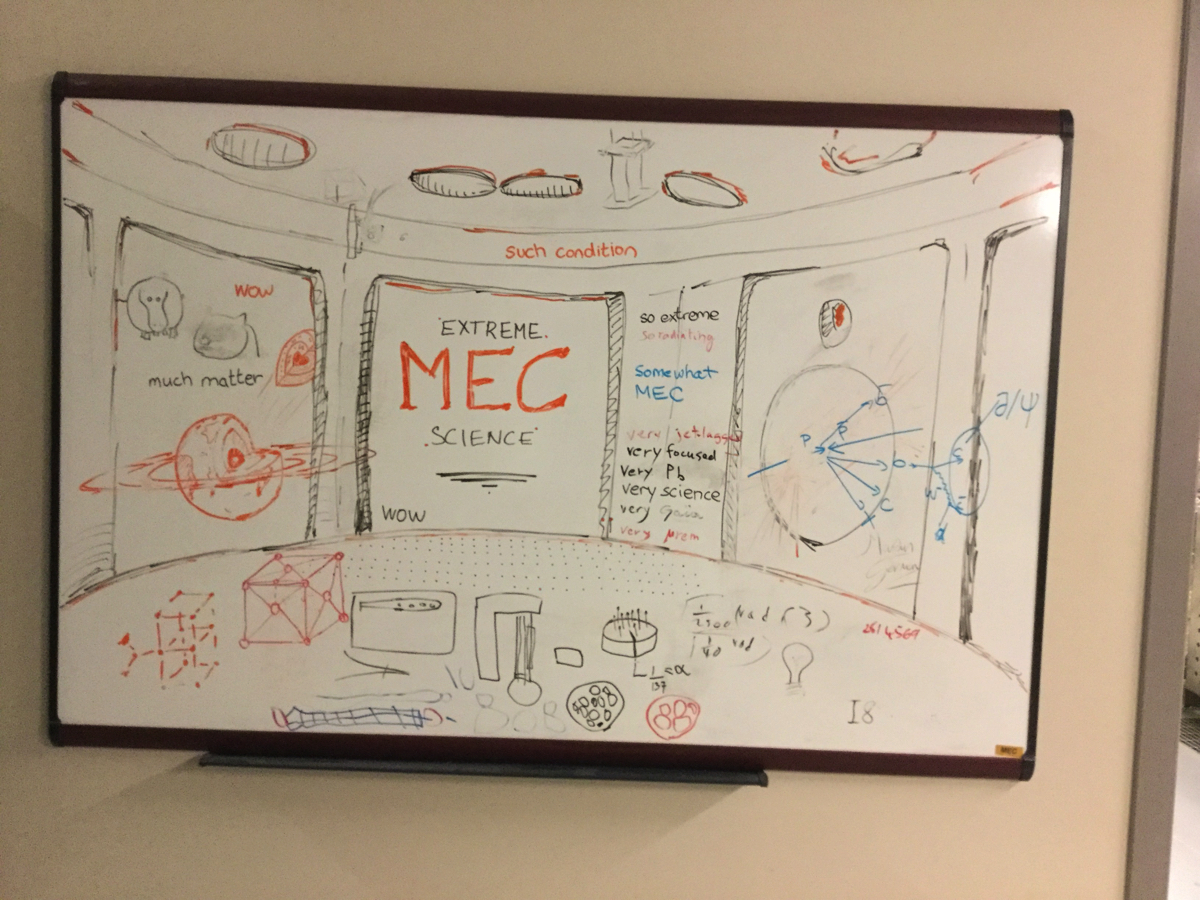 such condition
wow
much matter
EXTREME
MEC
SCIENCE
wow
so extreme
so radiating
Somewhat
MEC
very jetlagg
very focused
very Pb
very science
very
very μrem
P
P
C
∂/ψ
1/137 = α
I8
MEC